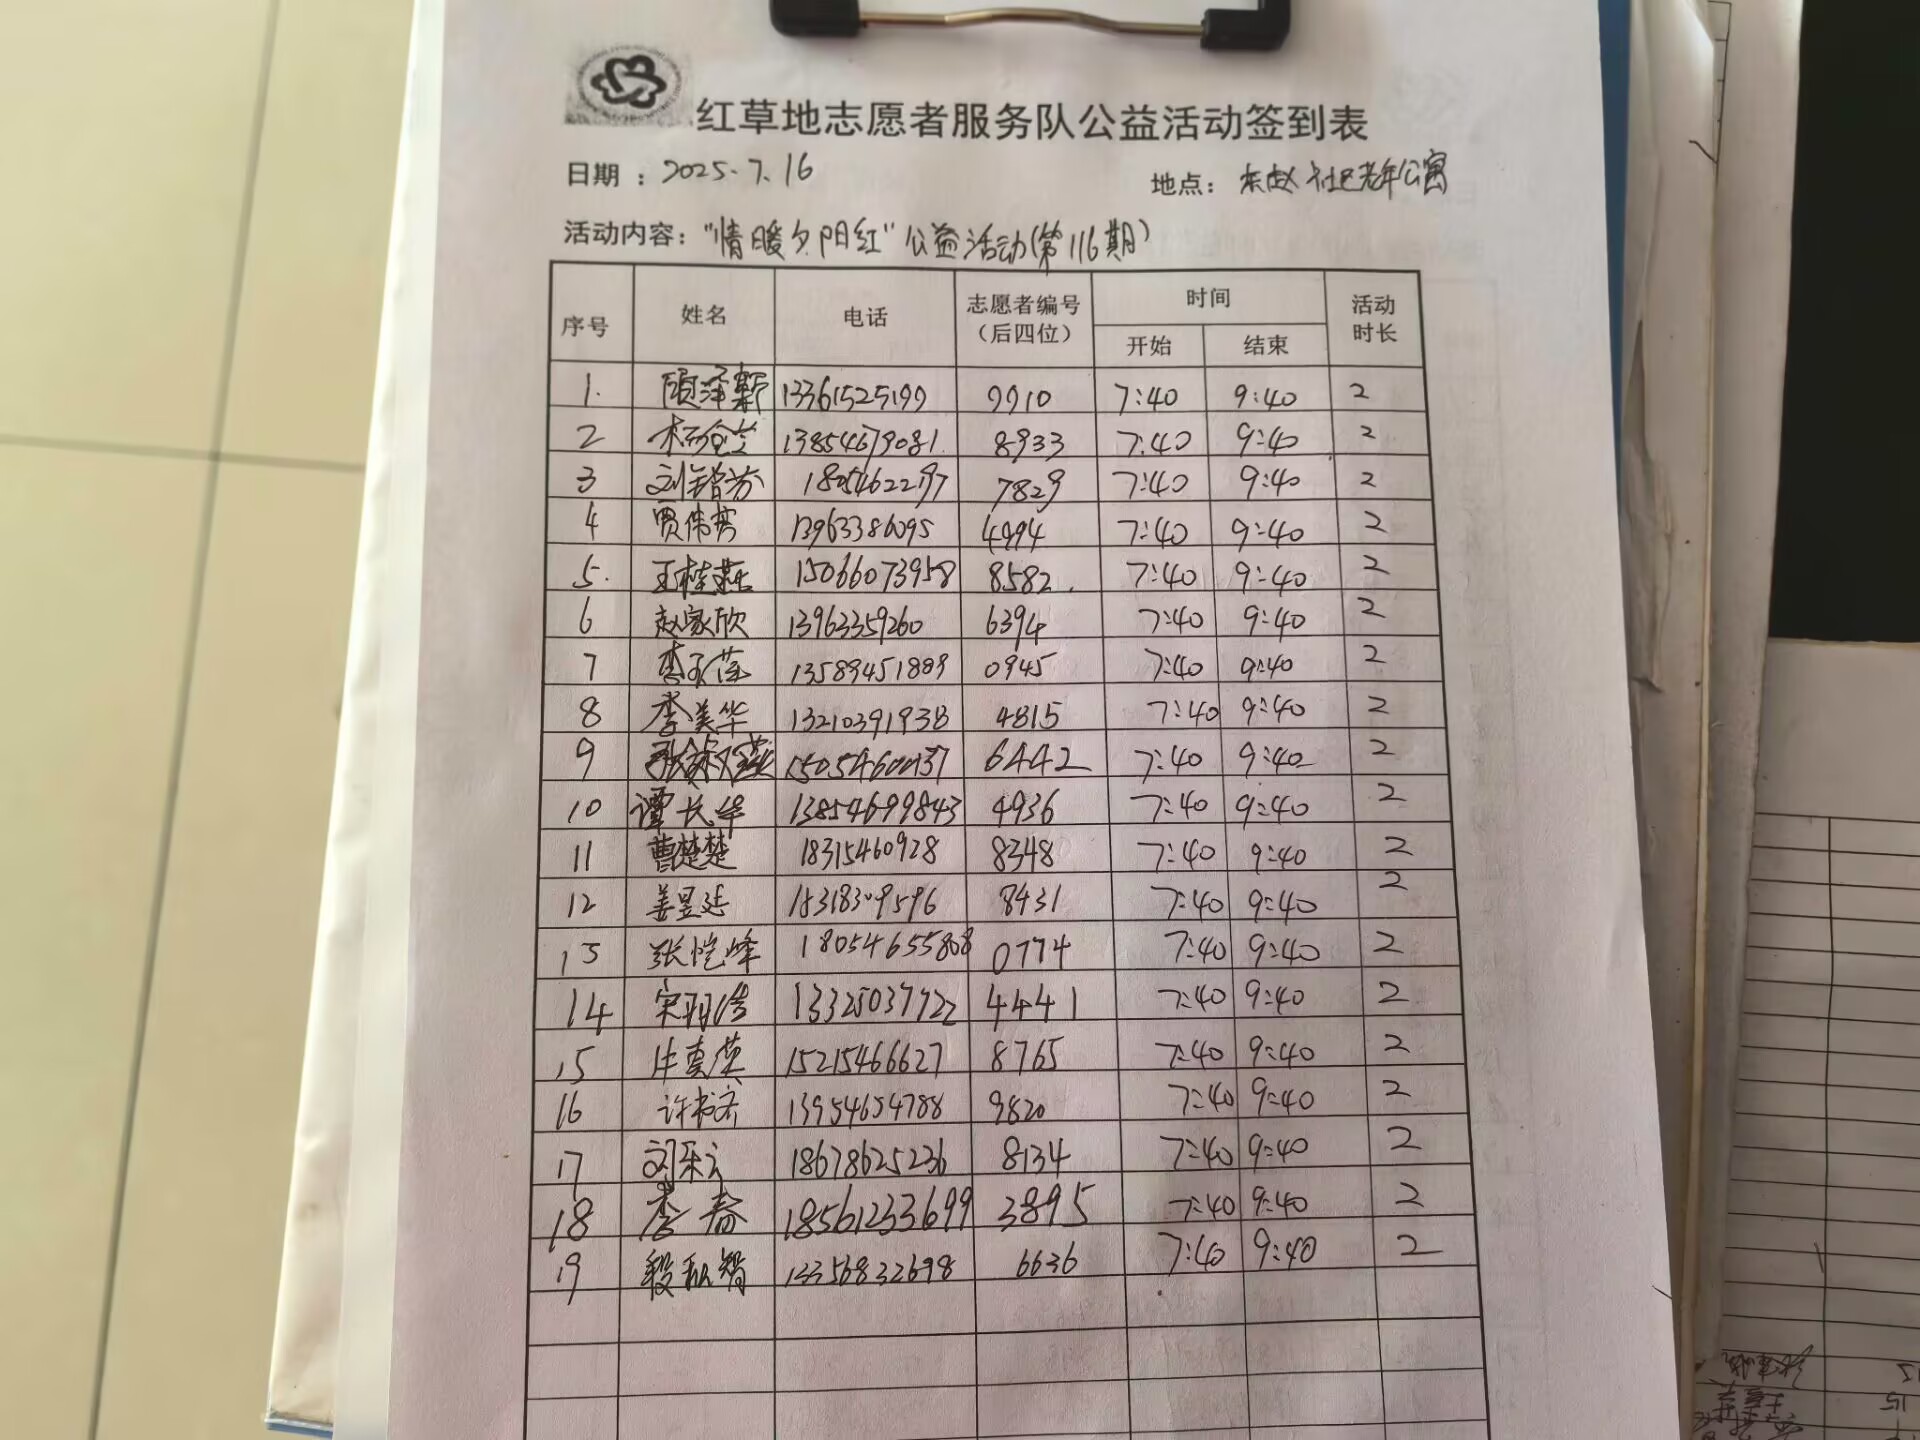 红草地志愿者服务队公益活动签到表
日期：2025.7.16 地点：东赵社区老年公寓
活动内容："情暖夕阳红"公益活动(第116期)
序号 姓名 电话 志愿者编号（后四位） 时间 开始 结束 活动时长
1. 顾泽新 13361525199 9910 7:40 9:40 2
2 13854679081 8933 7:40 9:40 2
3 18054622197 7829 7:40 9:40 2
4 贾伟芳 13963386095 4994 7:40 9:40 2
5. 王桂燕 15066073958 8582. 7:40 9:40 2
6 赵家欣 13963359260 6394 7:40 9:40 2
7 13589451889 0945 7:40 9:40 2
8 李美华 13210391938 4815 7:40 9:40 2
9 6442 7:40 9:40 2
10 谭长华 13854699843 4936 7:40 9:40 2
11 曹楚楚 18315460928 8348 7:40 9:40 2
12 姜昱延 15318309596 8431 7:40 9:40 2
13 张恺峰 18054655808 0774 7:40 9:40 2
14 13325037722 4441 7:40 9:40 2
15 15215466627 8765 7:40 9:40 2
16 13954654788 9820 7:40 9:40 2
17 18678625236 8134 7:40 9:40 2
18 李春 18561233699 3895 7:40 9:40 2
19 13356832698 6636 7:40 9:40 2